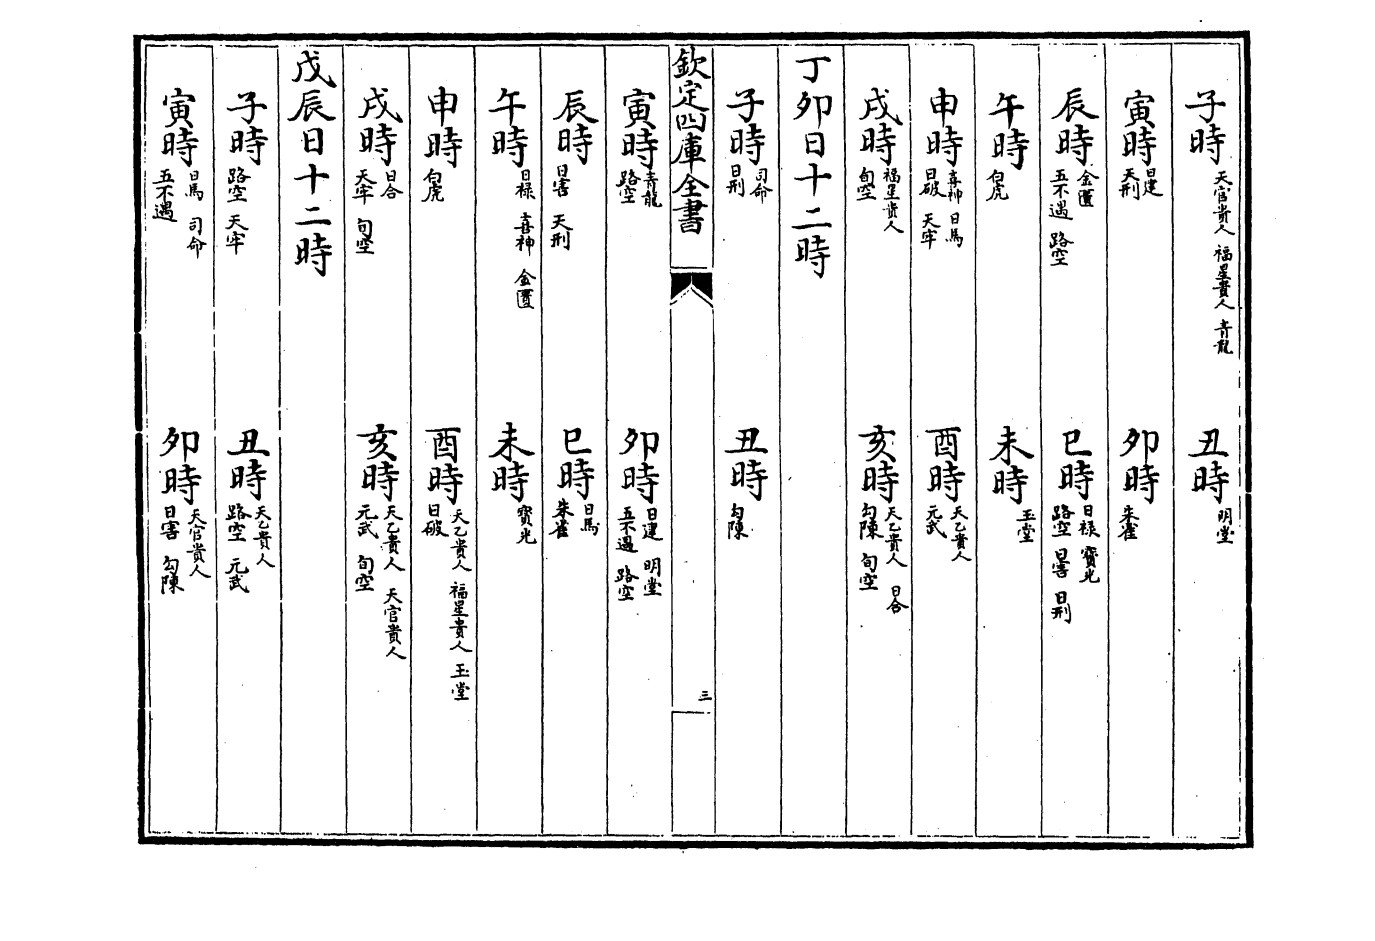 子時天官貴人 福星貴人 青龍 丑時明堂
寅時日建天刑 卯時朱雀
辰時金匱五不遇 路空 巳時日禄 寳光路空 日害 日刑
午時白虎 未時玉堂
申時喜神 日馬日破 天牢 酉時天乙貴人元武
戌時福星貴人旬空 亥時天乙貴人 日合勾陳 旬空
丁卯日十二時
子時司命日刑 丑時勾陳
欽定四庫全書
三
寅時青龍路空 卯時日建 明堂五不遇 路空
辰時日害 天刑 巳時日馬朱雀
午時日禄 喜神 金匱 未時寳光
申時白虎 酉時天乙貴人 福星貴人 玉堂日破
戌時日合天牢 旬空 亥時天乙貴人 天官貴人元武 旬空
戊辰日十二時
子時路空 天牢 丑時天乙貴人路空 元武
寅時日馬 司命五不遇 卯時天官貴人日害 勾陳